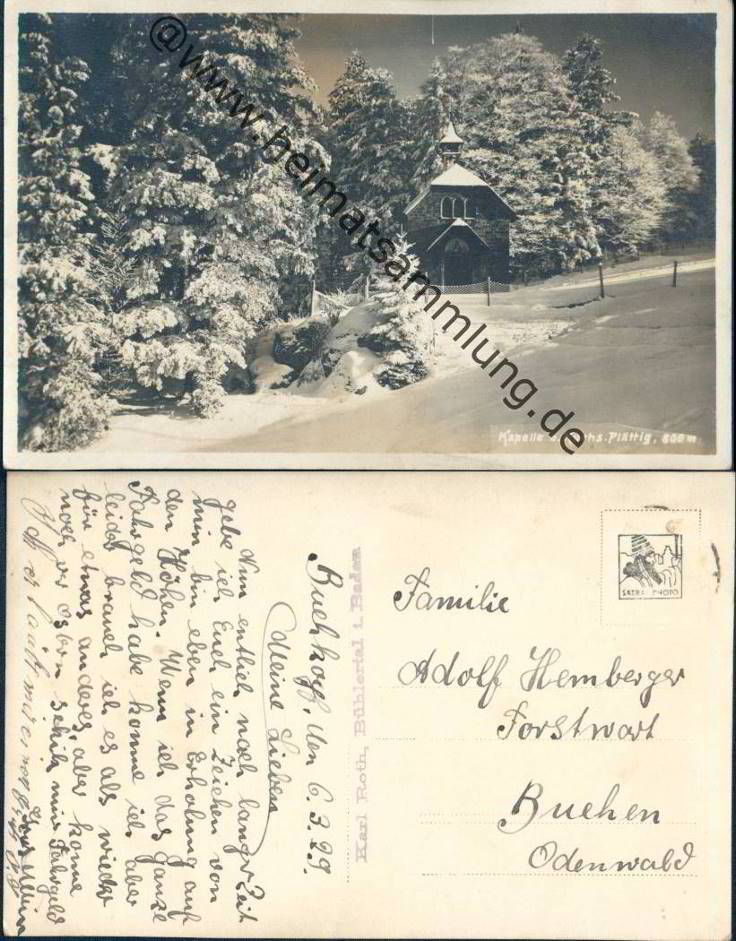 @www.heimatsammlung.de
Kapelle Plättig, 800 m
SATRA PHOTO
Familie
Adolf Hemberger
Forstwart
Buchen
Odenwald
Karl Roth, Bühlertal i. Baden
den 6.3.29.
Meine Lieben
Nun entlich nach langer Zeit
gebe ich Euch ein Zeichen von
mir bin eben in Erholung auf
den Höhen. Wenn ich das ganze
Fahrgeld habe komme ich aber
leider brauch ich es als wieder
für etwas anderes, aber komme
noch mir Fahrgeld